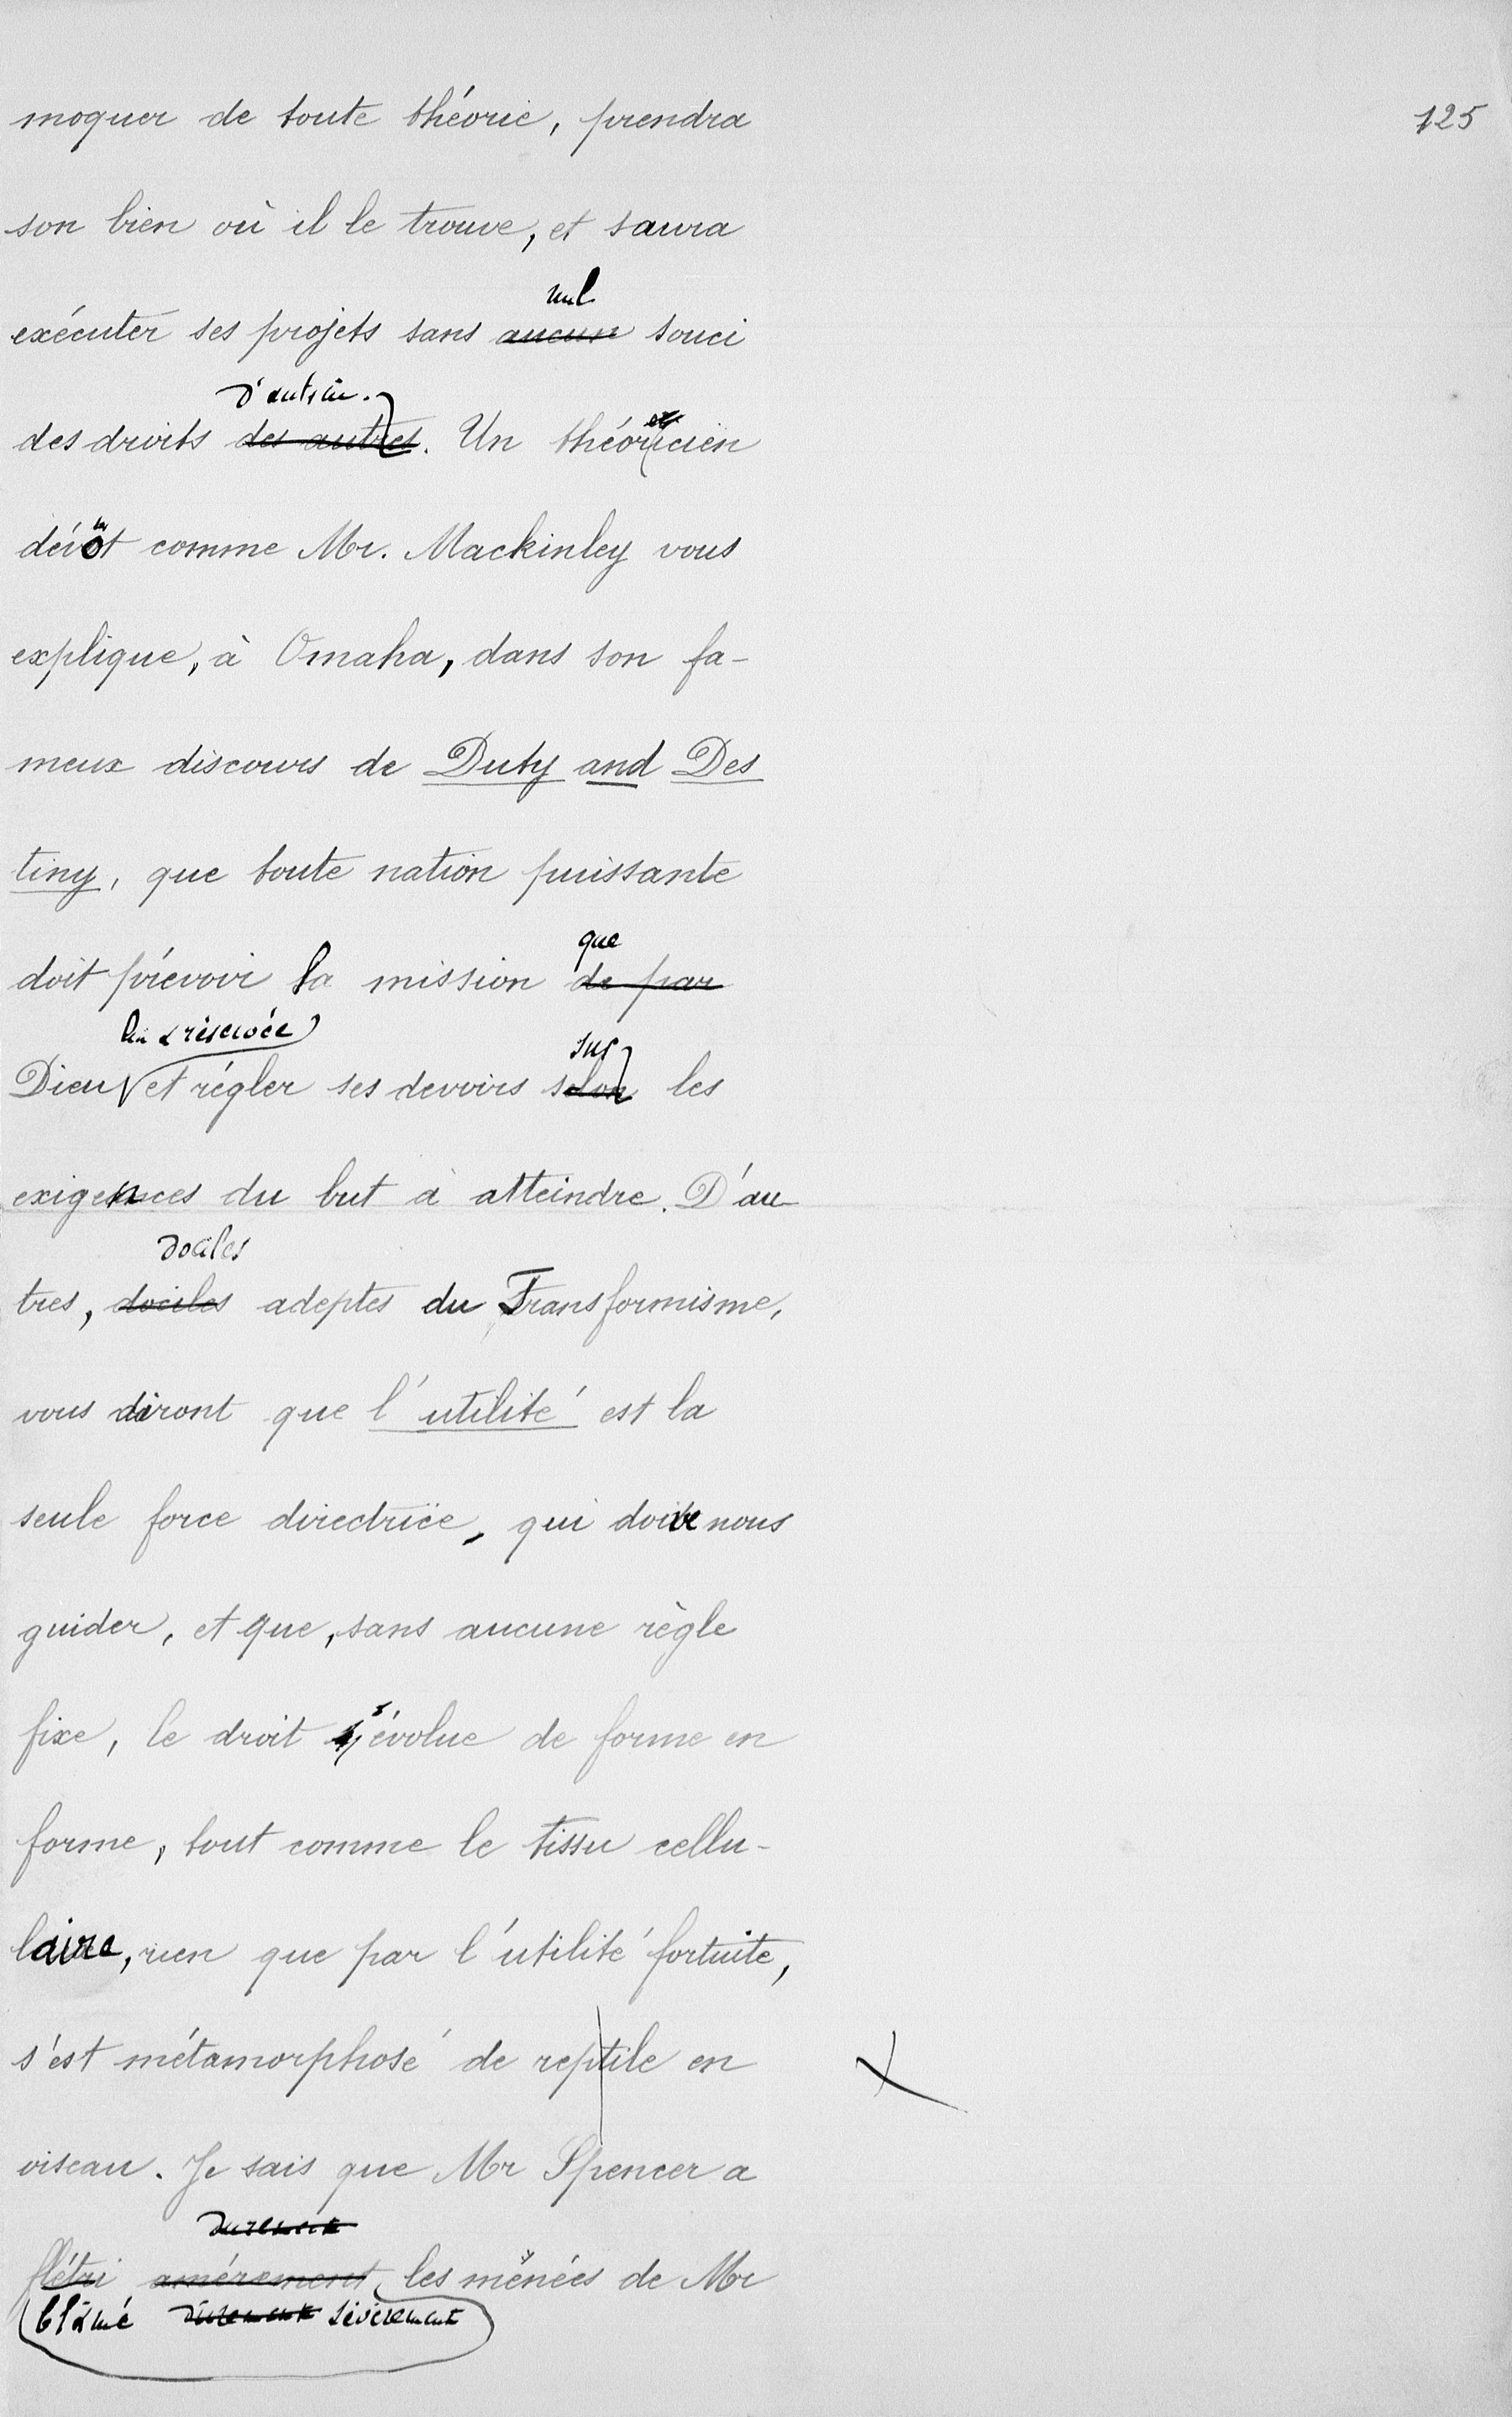 125
moquer de toute théorie, prendra
son bien où il le trouve, et saura
nul
exécuter ses projets sans aucun souci
d'autrui.
des droits des autres. Un théoricien
dévot comme Mr. Mackinley vous
explique, à Omaha, dans son fa-
meux discours de Duty and Des
tiny, que toute nation puissante
que
doit prévoir la mission de par
lui a réservée
sur
Dieu et régler ses devoirs selon les
exigences du but à atteindre. D'au-
dociles
tres, dociles adeptes du Transformisme,
vous diront que l'utilité est la
seule force directrice, qui doive nous
guider, et que, sans aucune règle
fixe, le droit évolue de forme en
forme, tout comme le tissu cellu-
laire, rien que par l'utilité fortuite,
s'est métamorphosé de reptile en
oiseau. Je sais que Mr Spencer a
durement
flétri amérement les menées de Mr
blâmé durement sévèrement